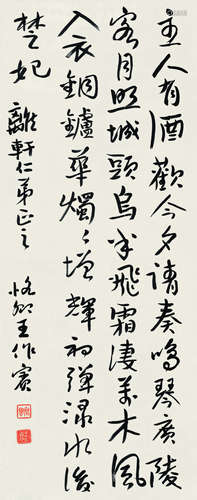 主人有酒歡今夕請奏鳴琴廣陵
客月照城頭烏半飛霜淒萬木風
入衣銅鑪華燭〻增輝初彈淥水後
楚妃
離軒仁弟正之
恪卿王作賓